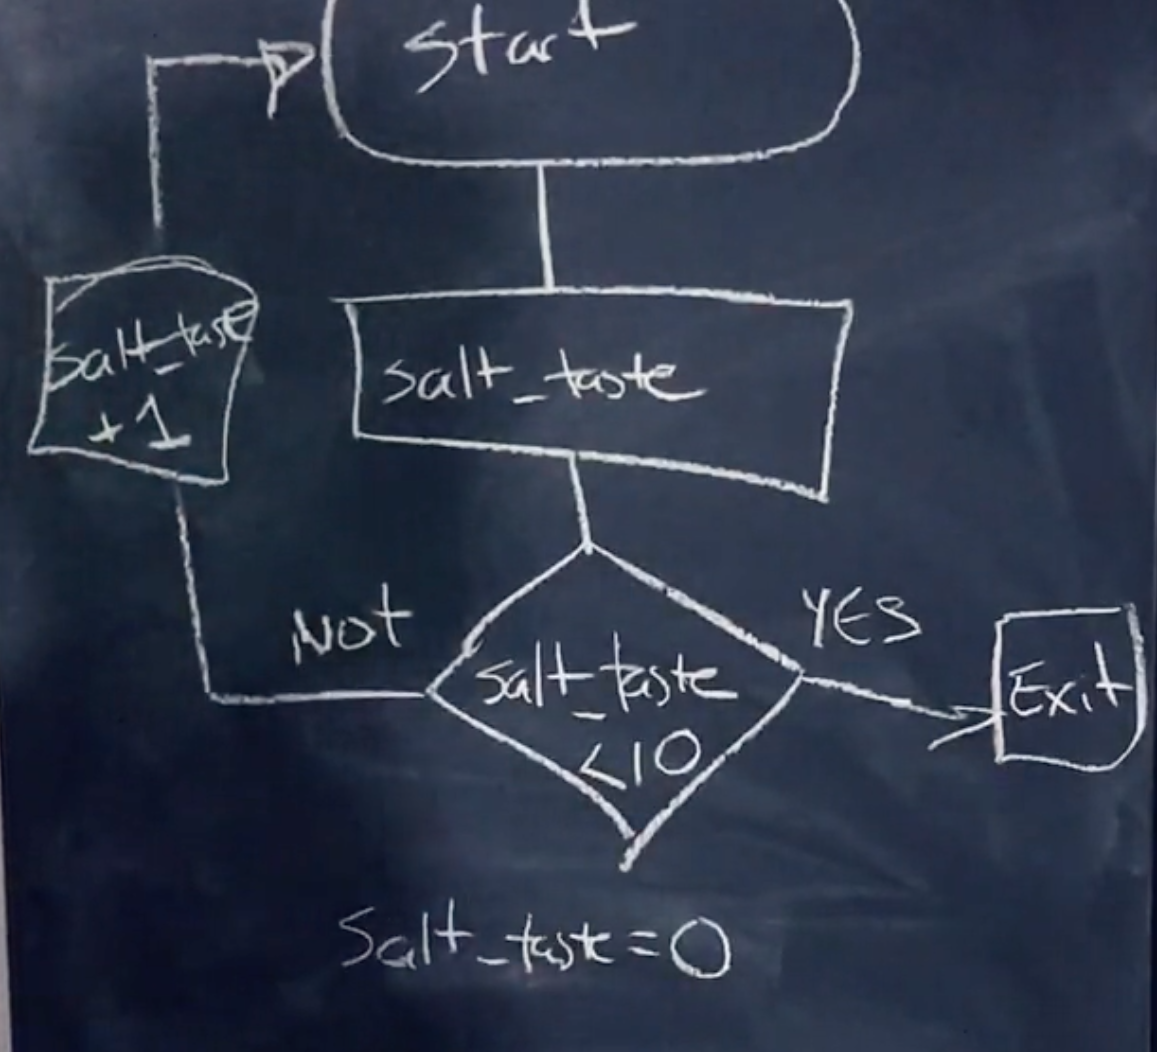 Start
salt_taste
+1
salt_taste
Not
YES
salt_taste
<10
Exit
Salt_taste=0